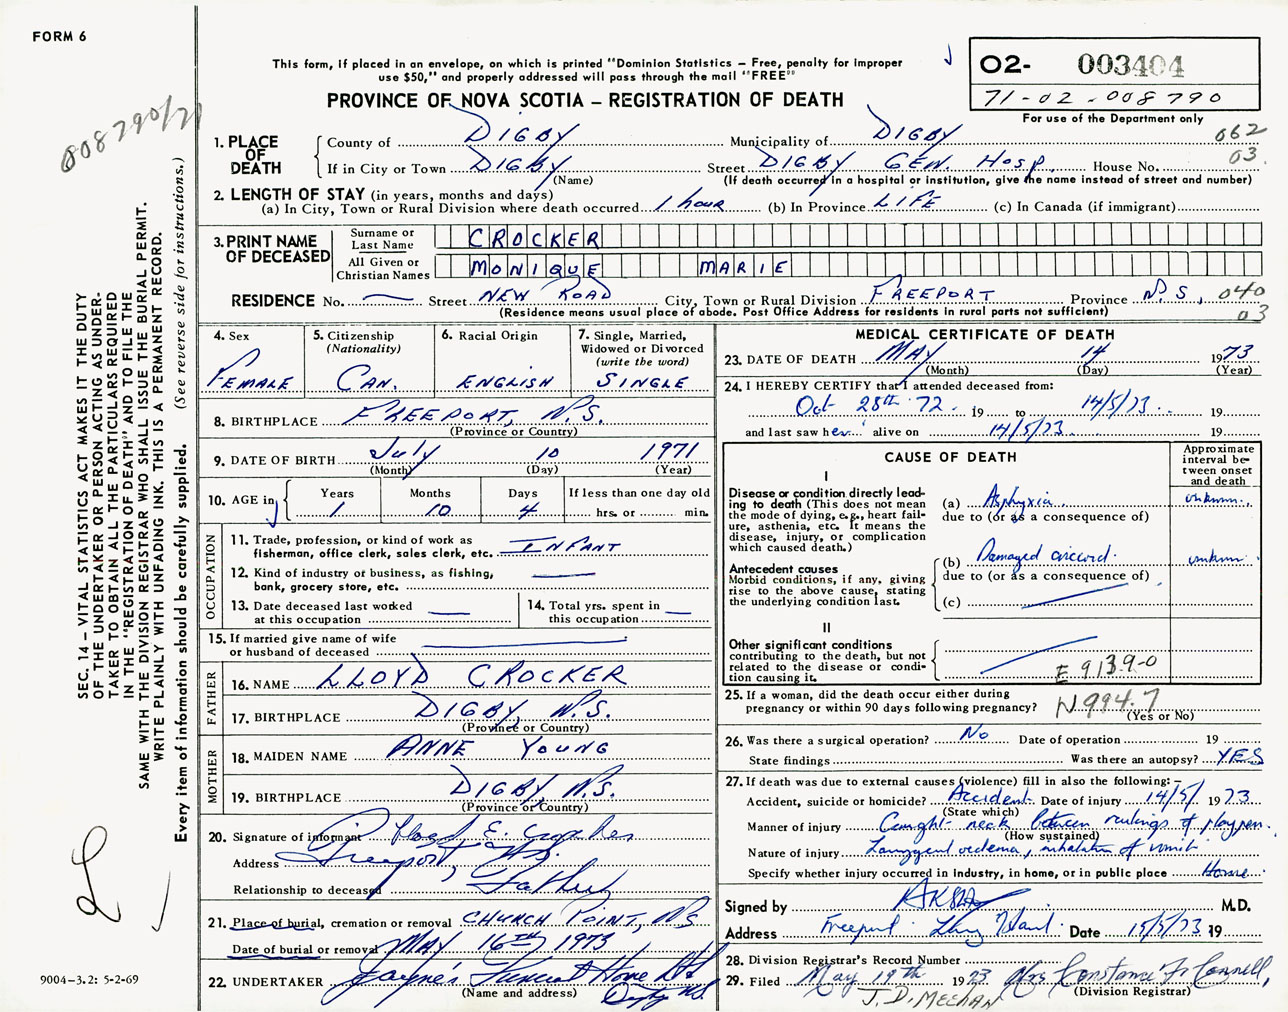 FORM 6
This form, if placed in an envelope, on which is printed "Dominion Statistics – Free, penalty for improper
use $50," and properly addressed will pass through the mail "FREE"
PROVINCE OF NOVA SCOTIA – REGISTRATION OF DEATH
O2- 003404
71-02-008790
For use of the Department only
008790/71
062
03.
1. PLACE OF DEATH County of DIGBY Municipality of DIGBY
If in City or Town DIGBY Street DIGBY GEN. HOSP. House No.
(Name) (If death occurred in a hospital or institution, give the name instead of street and number)
2. LENGTH OF STAY (in years, months and days)
(a) In City, Town or Rural Division where death occurred 1 hour (b) In Province LIFE (c) In Canada (if immigrant)
3. PRINT NAME OF DECEASED
Surname or Last Name CROCKER
All Given or Christian Names MONIQUE MARIE
RESIDENCE No. — Street NEW ROAD City, Town or Rural Division FREEPORT Province N.S, 040
03
(Residence means usual place of abode. Post Office Address for residents in rural parts not sufficient)
4. Sex FEMALE
5. Citizenship (Nationality) CAN.
6. Racial Origin ENGLISH
7. Single, Married, Widowed or Divorced (write the word) SINGLE
8. BIRTHPLACE FREEPORT, N.S.
(Province or Country)
9. DATE OF BIRTH July 10 1971
(Month) (Day) (Year)
10. AGE in Years 1 Months 10 Days 4 If less than one day old
hrs. or min.
OCCUPATION
11. Trade, profession, or kind of work as
fisherman, office clerk, sales clerk, etc. INFANT
12. Kind of industry or business, as fishing,
bank, grocery store, etc. —
13. Date deceased last worked
at this occupation —
14. Total yrs. spent in
this occupation —
15. If married give name of wife
or husband of deceased
FATHER
16. NAME LLOYD CROCKER
17. BIRTHPLACE DIGBY, N.S.
(Province or Country)
MOTHER
18. MAIDEN NAME ANNE YOUNG
19. BIRTHPLACE DIGBY, N.S.
(Province or Country)
20. Signature of informant Lloyd E. Crocker
Address Freeport, N.S.
Relationship to deceased Father
21. Place of burial, cremation or removal CHURCH POINT, NS
Date of burial or removal MAY 16TH 1973
22. UNDERTAKER Jayne's Funeral Home
(Name and address) Digby NS.
MEDICAL CERTIFICATE OF DEATH
23. DATE OF DEATH MAY 14 1973
(Month) (Day) (Year)
24. I HEREBY CERTIFY that I attended deceased from:
Oct 28th 72. 19 to 14/5/73. 19
and last saw her alive on 14/5/73. 19
CAUSE OF DEATH
Approximate interval between onset and death
I
Disease or condition directly leading to death (This does not
mean the mode of dying, e.g., heart failure, asthenia, etc. It means the
disease, injury, or complication
which caused death.)
(a) Asphyxia unknown
due to (or as a consequence of)
Antecedent causes
Morbid conditions, if any, giving
rise to the above cause, stating
the underlying condition last.
(b) Damaged unknown
due to (or as a consequence of)
(c)
II
Other significant conditions
contributing to the death, but not
related to the disease or condition causing it.
E 9139-0
25. If a woman, did the death occur either during
pregnancy or within 90 days following pregnancy? N994.7
(Yes or No)
26. Was there a surgical operation? No Date of operation 19
State findings Was there an autopsy? YES
27. If death was due to external causes (violence) fill in also the following:–
Accident, suicide or homicide? Accident Date of injury 14/5/ 1973
(State which)
Manner of injury Caught neck between railings of playpen.
(How sustained)
Nature of injury Laryngeal oedema, inhalation of vomit
Specify whether injury occurred in industry, in home, or in public place Home
Signed by M.D.
Address Freeport Long Island Date 15/5/73 19
28. Division Registrar's Record Number
29. Filed May 19th 1973 Mrs Constance F. Connell,
(Division Registrar)
J. D. MEEHAN
SEC. 14 – VITAL STATISTICS ACT MAKES IT THE DUTY
OF THE UNDERTAKER OR PERSON ACTING AS UNDER-
TAKER TO OBTAIN ALL THE PARTICULARS REQUIRED
IN THE "REGISTRATION OF DEATH" AND TO FILE THE
SAME WITH THE DIVISION REGISTRAR WHO SHALL ISSUE THE BURIAL PERMIT.
WRITE PLAINLY WITH UNFADING INK. THIS IS A PERMANENT RECORD.
Every item of information should be carefully supplied. (See reverse side for instructions.)
9004-3.2: 5-2-69